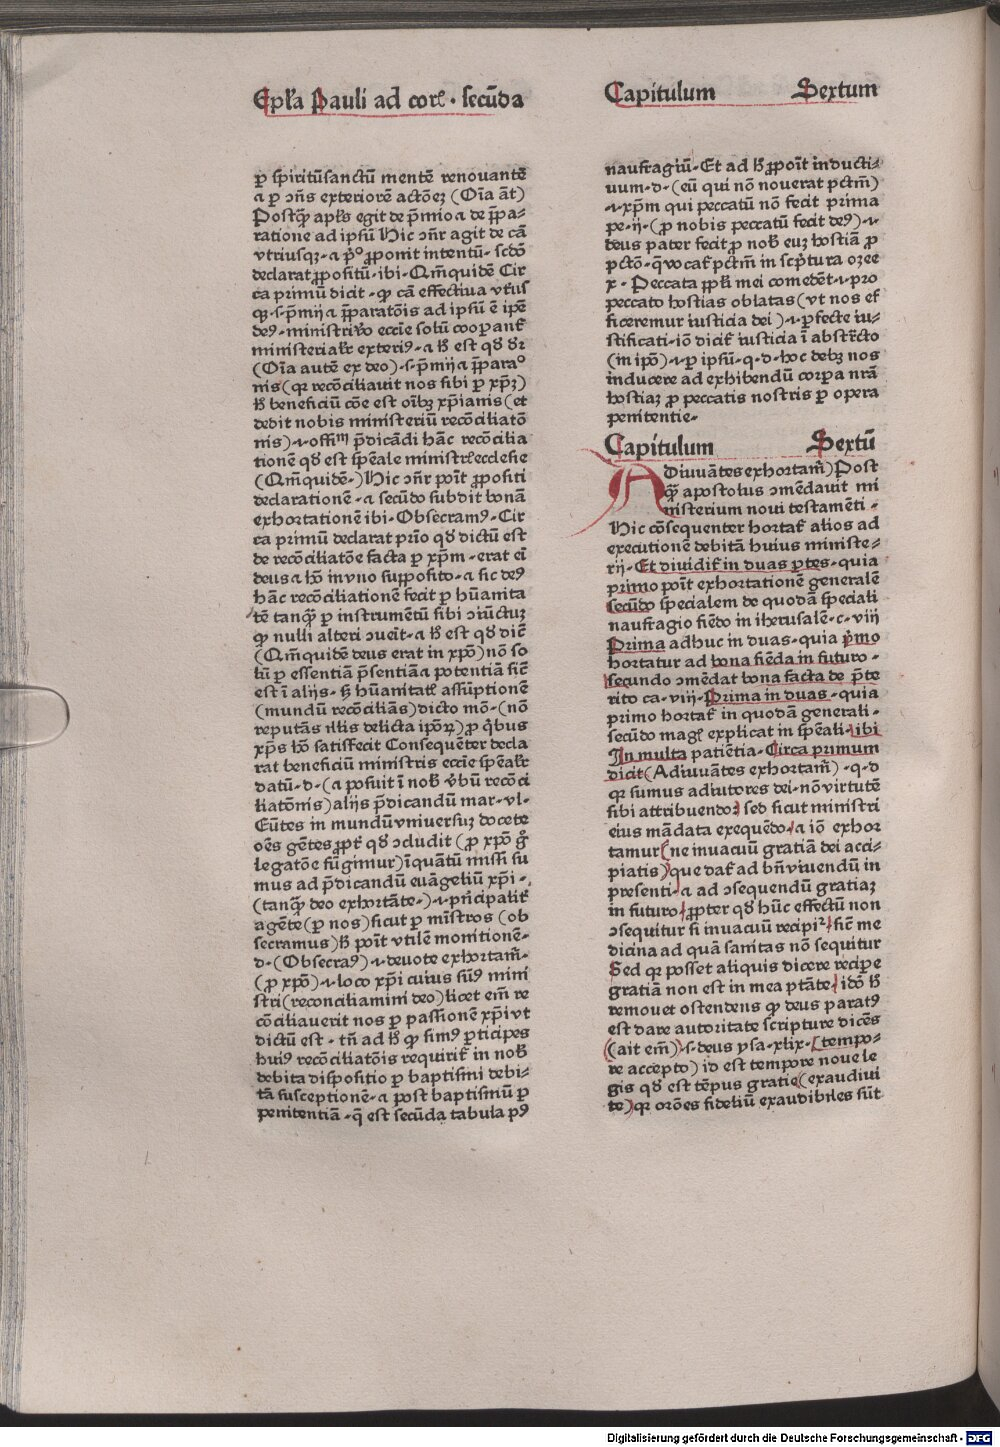 Epl̄a Pauli ad corꝭ · secūda
Capitulum Sextum
ꝑ spiritūsanctū mentē renouantē
a ꝑ ↄn̄s exteriorē actōeꝫ (Oīa āt)
Postqꝫ̄ apl̄us egit de p̄mio a de p̄pa⸗
ratione ad ipsū Hic ↄn̄r agit de cā
vtriusqꝫ· a pͦ ꝓponit intentū· scd̄o
declarat ꝓpositū· ibi · Qm̄quidē Cir
ca primū dicit · ꝙ cā effectiua vtriꝰ
qꝫ ·s· p̄mij a p̄paratōis ad ipsū ē ipē
deꝰ · ministri ꝟo eccīe solū cooꝑant̄
ministerialr̄ exteriꝰ · a h̄ est qd̄ dr̄
(Oīa autē ex deo) ·s· p̄mij a p̄paraͦ
nis (qꝛ recōciliauit nos sibi ꝑ xp̄ꝫ)
h̄ beneficiū cōe est oībꝫ xp̄ianis (et
dedit nobis ministeriū recōciliatō
nis) ·i· offiᵐ p̄dicādi hāc recōcilia
tionē qd̄ est sp̄eale ministrꝭ ecclesie
(Qm̄quidē·) Hic ↄn̄r poīt ꝓpositi
declarationē · a secūdo subdit bonā
exhortationē ibi · Obsecramꝰ · Cir
ca primū declarat prīo qd̄ dictū est
de recōciliatōe facta ꝑ xp̄m · erat eī
deus a hō in vno supposito · a sic deꝰ
hāc recōciliationē fecit ꝑ hūanita
tē tanqꝫ̄ ꝑ instrumētū sibi ↄiūctuꝫ
ꝙ nulli alteri ↄueīt · a h̄ est qd̄ dic̄
(Qm̄quidē deus erat in xp̄o) nō so
lū ꝑ essentiā p̄sentiā a potentiā sic̄
est ī alijs · sꝫ hūanitatꝭ assūptionē
(mundū recōciliās) dicto mō · (nō
reputās illis delicta ipoꝝ) ꝓ q̇bus
xp̄s hō satisfecit Consequēter decla
rat beneficiū ministris eccīe sp̄ealr̄
datū · d · (a posuit ī nob̄ ꝟbū recōci
liatōnis) alijs p̄dicandū mar· vl·
Eūtes in mundū vniuersuꝫ docete
oēs gētes ꝓpt̄ qd̄ ↄcludit (ꝓ xp̄o gͦ
legatōe fūgimur) īquātū missi su
mus ad p̄dicandū euāgeliū xp̄i ·
(tanqꝫ̄ deo exhortāte·) ·i· prīcipalit̄
agēte (ꝑ nos) sicut ꝑ mīstros (ob
secramus) h̄ poīt vtilē monitionē·
d· (Obsecraꝰ) ·i· deuote exhortam̄·
(ꝓ xp̄o) ·i· loco xp̄i cuius sūꝰ mini
stri (reconciliamini deo) licet em̄ re
cōciliauerit nos ꝑ passionē xp̄i vt
dictū est · tn̄ ad h̄ ꝙ simꝰ ꝑticipes
huiꝰ recōciliatōis requirit̄ in nob̄
debita dispositio ꝑ baptismi debi⸗
tā susceptionē · a post baptismū ꝑ
penitentiā · q̄ est secūda tabula pꝰ
naufragiū · Et ad h̄ ꝓpoīt inducti⸗
uum · d · (eū qui nō nouerat pctm̄)
·i· xp̄m qui peccatū nō fecit prima
pe· ij · (ꝓ nobis peccatū fecit deꝰ) ·i·
deus pater fecit ꝓ nob̄ euꝫ hostiā ꝓ
pctō · q̄ vocat̄ pctm̄ in scp̄tura ozee
x · Peccata ppl̄i mei comedēt ·i· pro
peccato hostias oblatas (vt nos ef
ficeremur iusticia dei) ·i· ꝑfecte iu⸗
stificati · iō dicit̄ iusticia ī abstrcto
(in ipō) ·i· ꝑ ipsū · q·d· hoc debꝫ nos
inducere ad exhibendū corꝑa nrā
hostiaꝫ ꝓ peccatis nostris ꝑ opera
penitentie·
Capitulum Sextū
Adiuuātes exhortam̄) Post
qꝫ̄ apostolus ↄmēdauit mi
nisterium noui testamēti ·
Hic cōsequenter hortat̄ alios ad
executionē debitā huius ministe⸗
rij · Et diuidit̄ in duas ꝑtes · quia
primo poīt exhortationē generalē
secūdo specialem de quodā speciali
naufragio fiēdo in iherusalē · c· viij
Prima adhuc in duas · quia p̄mo
hortatur ad bona fiēda in futuro ·
secundo ↄmēdat bona facta de p̄te
rito ca· viij · Prima in duas · quia
primo hortat̄ in quodā generali ·
secūdo magꝭ explicat in sp̄eali · ibi
In multa patiētia · Circa primum
dicit (Adiuuātes exhortam̄) · q·d
qꝛ sumus adiutores dei · nō virtutē
sibi attribuendo: sed sicut ministri
eius mādata exequēdo· a iō exhor
tamur (ne inuacuū gratiā dei acci⸗
piatis) que dat̄ ad bn̄ viuendū in
presenti · a ad ↄsequendū gratiaꝫ
in futuro· ꝓpter qd̄ hūc effectū non
ↄsequitur si inuacuū recipiꝛ· sic̄ me
dicina ad quā sanitas nō sequitur
Sed qꝛ posset aliquis dicere recipe
gratiā non est in mea ptāte· idō h̄
remouet ostendens ꝙ deus paratꝰ
est dare autoritate scripture dicēs
(ait em̄) ·s· deus ysa· xlix· (tempo⸗
re accepto) id est tempore noue le
gis qd̄ est tēpus gratie (exaudiui
te) qꝛ orōes fideliū exaudibiles sūt
Digitalisierung gefördert durch die Deutsche Forschungsgemeinschaft - DFG